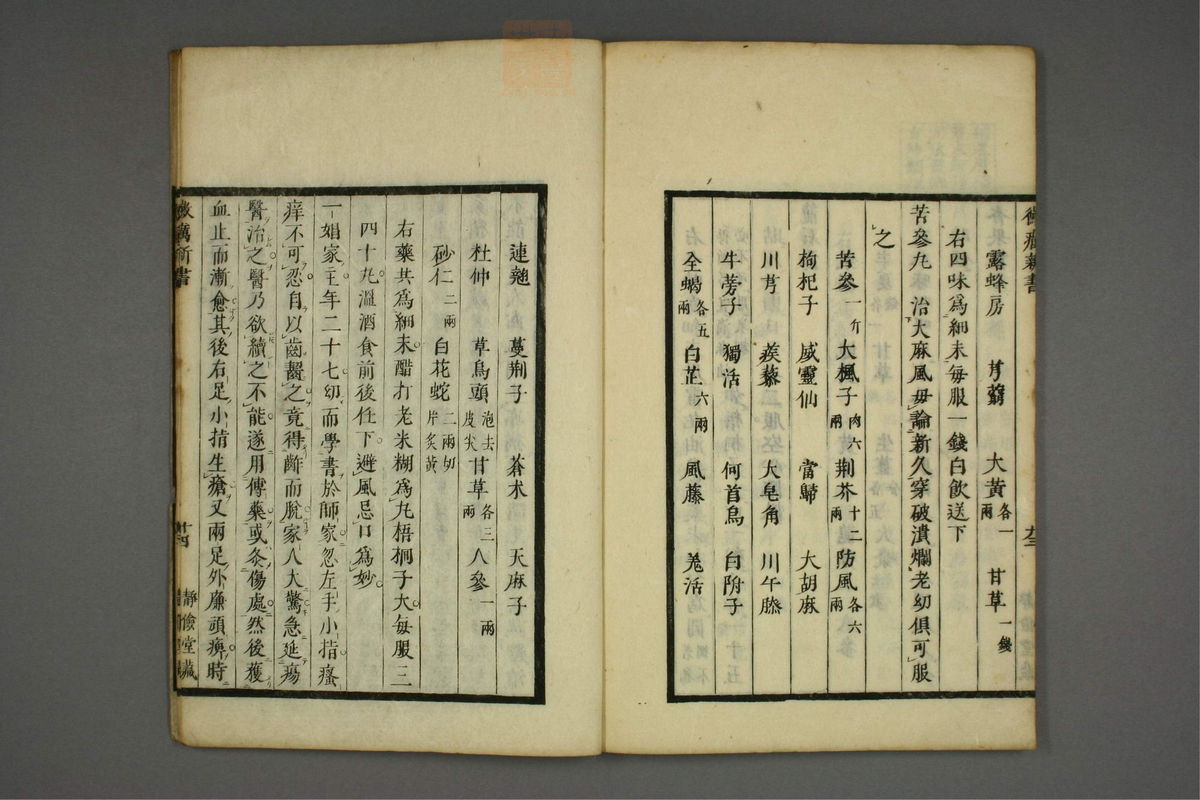 黴癘新書
露蜂房 芎藭 大黃各一兩 甘草一錢
右四味爲細末毎服一錢白飲送下
苦參丸 治大麻風毋論新久穿破潰爛老幼俱可服
之
苦參一斤 大楓子肉六兩 荆芥十二兩 防風各六兩
枸杞子 威靈仙 當歸 大胡麻
川芎 蒺藜 大皂角 川午膝
牛蒡子 獨活 何首烏 白附子
全蝎各五兩 白芷六兩 風藤 羗活
連翹 蔓荆子 蒼术 天麻子
杜仲 草烏頭泡去皮尖 甘草各三兩 人參一兩
砂仁二兩 白花蛇二兩切片炙黃
右藥共爲細末醋打老米糊爲丸梧桐子大毎服三
四十丸溫酒食前後任下避風忌口爲妙
一娼家主年二十七幼而學書於師家忽左手小指瘙
痒不可忍自以齒齧之竟得斷而脫家人大驚急延瘍
醫治之醫乃欲續之不能遂用傅藥或灸傷處然後蔆
血止而漸愈其後右足小指生瘡又兩足外廉頑痹時
黴癘新書 廿四 靜儉堂藏